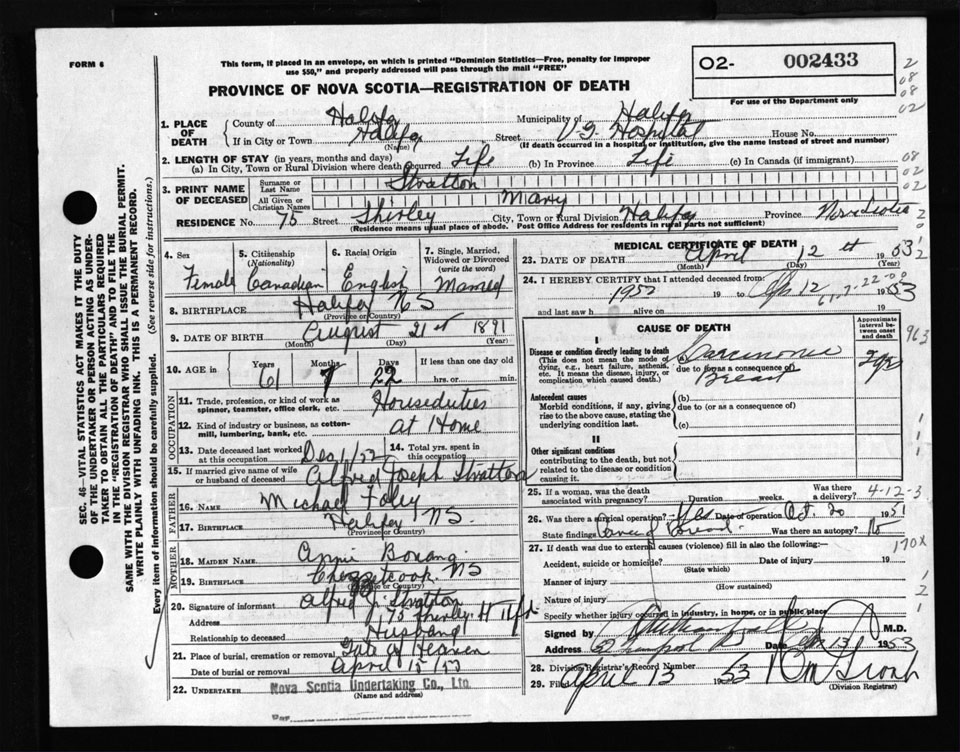 FORM 6
This form, if placed in an envelope, on which is printed "Dominion Statistics—Free, penalty for improper
use $50," and properly addressed will pass through the mail "FREE"
O2- 002433
For use of the Department only
2
08
08
02
PROVINCE OF NOVA SCOTIA—REGISTRATION OF DEATH
1. PLACE OF DEATH
County of Halifax Municipality of Halifax
If in City or Town Halifax Street V.G. Hospital House No.
(Name) (If death occurred in a hospital or institution, give the name instead of street and number)
2. LENGTH OF STAY (in years, months and days)
(a) In City, Town or Rural Division where death occurred Life (b) In Province Life (c) In Canada (if immigrant)
08
02
02
3. PRINT NAME OF DECEASED
Surname or Last Name Stratton
All Given or Christian Names Mary
RESIDENCE No. 75 Street Shirley City, Town or Rural Division Halifax Province Nova Scotia
(Residence means usual place of abode. Post Office Address for residents in rural parts not sufficient)
4. Sex Female
5. Citizenship (Nationality) Canadian
6. Racial Origin English
7. Single, Married, Widowed or Divorced (write the word) Married
8. BIRTHPLACE Halifax NS
(Province or Country)
9. DATE OF BIRTH August 21st 1891
(Month) (Day) (Year)
10. AGE in Years 61 Months 7 Days 22 If less than one day old
hrs. or min.
OCCUPATION
11. Trade, profession, or kind of work as spinner, teamster, office clerk, etc. Houseduties
12. Kind of industry or business, as cotton-mill, lumbering, bank, etc. At Home
13. Date deceased last worked at this occupation Dec 1/52
14. Total yrs. spent in this occupation
15. If married give name of wife or husband of deceased Alfred Joseph Stratton
FATHER
16. NAME Michael Foley
17. BIRTHPLACE Halifax NS
(Province or Country)
MOTHER
18. MAIDEN NAME Annie Bonang
19. BIRTHPLACE Chezzetcook NS
(Province or Country)
20. Signature of informant Alfred J. Stratton
Address 75 Shirley St Hfx
Relationship to deceased Husband
21. Place of burial, cremation or removal Gate of Heaven
Date of burial or removal April 15/53
22. UNDERTAKER Nova Scotia Undertaking Co., Ltd
(Name and address)
MEDICAL CERTIFICATE OF DEATH
23. DATE OF DEATH April 12th 1953
(Month) (Day) (Year)
24. I HEREBY CERTIFY that I attended deceased from:
1952 19 to Apr 12 1953
and last saw h alive on 19
CAUSE OF DEATH
Approximate interval between onset and death
I
Disease or condition directly leading to death
(This does not mean the mode of dying, e.g., heart failure, asthenia, etc. It means the disease, injury, or complication which caused death.)
(a) Carcinoma
due to (or as a consequence of)
Breast
2 yrs
963
Antecedent causes
Morbid conditions, if any, giving rise to the above cause, stating the underlying condition last.
(b)
due to (or as a consequence of)
(c)
II
Other significant conditions
contributing to the death, but not related to the disease or condition causing it.
25. If a woman, was the death associated with pregnancy? Duration weeks. Was there a delivery?
4-12-3
26. Was there a surgical operation? Yes Date of operation Oct. 20 1951
State findings Was there an autopsy? No
27. If death was due to external causes (violence) fill in also the following:—
170X
Accident, suicide or homicide? Date of injury 19
(State which)
Manner of injury
(How sustained)
Nature of injury
Specify whether injury occurred in industry, in home, or in public place
Signed by M.D.
Address Date Apr 13 1953
28. Division Registrar's Record Number
29. Filed April 13 1953
(Division Registrar)
SEC. 46—VITAL STATISTICS ACT MAKES IT THE DUTY
OF THE UNDERTAKER OR PERSON ACTING AS UNDER-
TAKER TO OBTAIN ALL THE PARTICULARS REQUIRED
IN THE "REGISTRATION OF DEATH" AND TO FILE THE
SAME WITH THE DIVISION REGISTRAR WHO SHALL ISSUE THE BURIAL PERMIT.
WRITE PLAINLY WITH UNFADING INK. THIS IS A PERMANENT RECORD.
Every item of information should be carefully supplied. (See reverse side for instructions.)